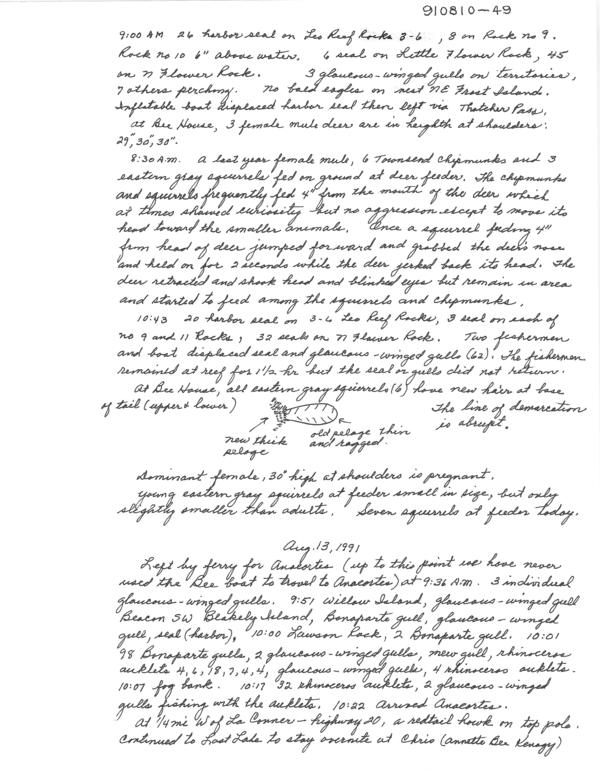 910810-49
9:00 AM 26 harbor seal on Leo Reef Rocks 3-6, 8 on Rock no 9.
Rock no 10 6" above water. 6 seal on Little Flower Rock, 45
on N Flower Rock. 3 glaucous-winged gulls on territories,
7 others perching. No bald eagles on nest NE Frost Island.
Inflatable boat displaced harbor seal then left via Thatcher Pass.
At Bee House, 3 female mule deer are in heighth at shoulders:
29", 30", 30".
8:30 A.M. A last year female mule, 6 Townsend chipmunks and 3
eastern gray squirrels fed on ground at deer feeder. The chipmunks
and squirrels frequently fed 4" from the mouth of the deer which
at times showed curiosity but no aggression except to move its
head toward the smaller animals. Once a squirrel feeding 4"
from head of deer jumped forward and grabbed the deer's nose
and held on for 2 seconds while the deer jerked back its head. The
deer retracted and shook head and blinked eyes but remain in area
and started to feed among the squirrels and chipmunks.
10:43 20 harbor seal on 3-6 Leo Reef Rocks, 3 seal on each of
no 9 and 11 Rocks, 32 seals on N Flower Rock. Two fishermen
and boat displaced seal and glaucous-winged gulls (62). The fishermen
remained at reef for 1 1/2 hr but the seal or gulls did not return.
At Bee House, all eastern gray squirrels (6) have new hair at base
of tail (upper & lower)
The line of demarcation
is abrupt.
new thick
pelage
old pelage thin
and ragged.
Dominant female, 30" high at shoulders is pregnant.
Young eastern gray squirrels at feeder small in size, but only
slightly smaller than adults. Seven squirrels at feeder today.
Aug. 13, 1991
Left by ferry for Anacortes (up to this point we have never
used the Bee boat to travel to Anacortes) at 9:36 A.M. 3 individual
glaucous-winged gulls. 9:51 Willow Island, glaucous-winged gull
Beacon SW Blakely Island, Bonaparte gull, glaucous-winged
gull, seal (harbor), 10:00 Lawson Rock, 2 Bonaparte gull. 10:01
98 Bonaparte gulls, 2 glaucous-winged gulls, mew gull, rhinoceros
auklets 4, 6, 18, 7, 4, 4, glaucous-winged gulls, 4 rhinoceros auklets.
10:07 fog bank. 10:17 32 rhinoceros auklets, 2 glaucous-winged
gulls fishing with the auklets. 10:22 Arrived Anacortes.
At 1/4 mi W of La Conner - highway 20, a redtail hawk on top pole.
Continued to Lost Lake to stay overnite at Chris (Annette Bee Kenagy)